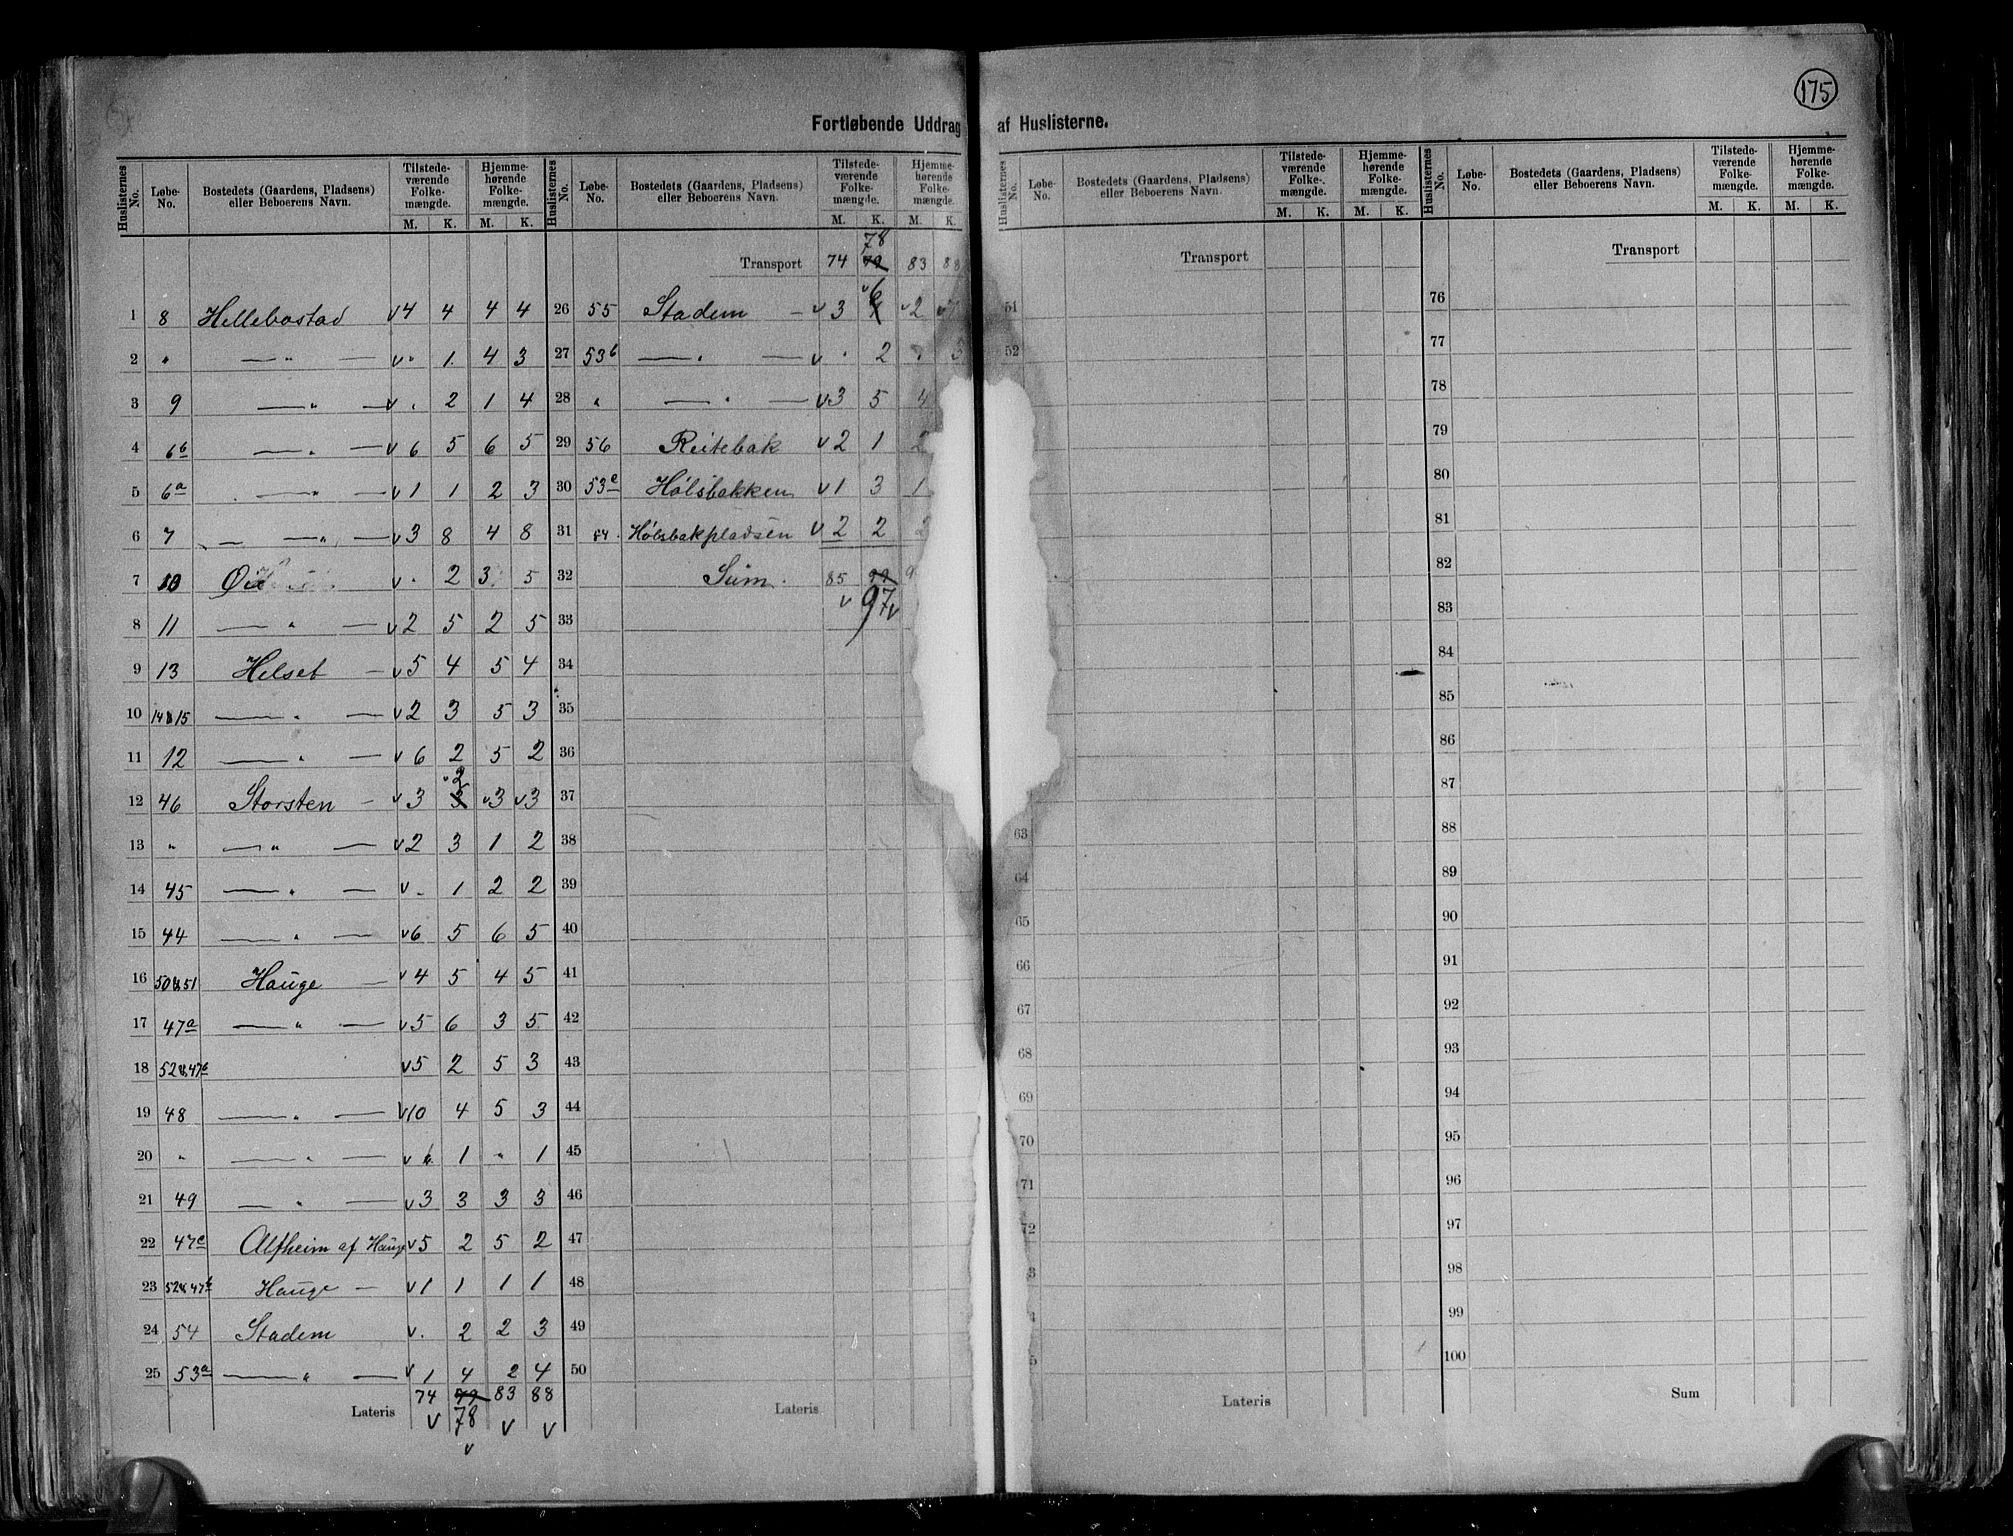 175
Fortløbende Uddrag af Huslisterne.
Huslisternes No. | Løbe-No. | Bostedets (Gaardens, Pladsens) eller Beboerens Navn. | Tilstedeværende Folkemængde. M. K. | Hjemmehørende Folkemængde. M. K.
1 8 Hellebostad v4 4 4 4
2 " — " — v " 1 4 3
3 9 — " — v . 2 1 4
4 6b — " — v 6 5 6 5
5 6a . — " — v 1 1 2 3
6 7 — " — v 3 8 4 8
7 10 v . 2 3 5
8 11 — " — v 2 5 2 5
9 13 Helset — v 5 4 5 4
10 14&15 — " — v 2 3 5 3
11 12 — " — v 6 2 5 2
12 46 Storsten — v 3 3 2 v3 v3
13 " — " — v 2 3 1 2
14 45 — " — v . 1 2 2
15 44 — " — v6 5 6 5
16 50&51 Hauge — v 4 5 4 5
17 47a — " — v 5 6 3 5
18 52&47b v5 2 5 3
19 48 — " — v10 4 5 3
20 " — " — v 1 " 1
21 49 — " — v3 3 3 3
22 47c Alfheim af Hauge v5 2 5 2
23 52&47b Hauge — v1 1 1 1
24 54 Stadem v . 2 2 3
25 53a — " — v 1 4 2 4
Lateris 74 79 83 88
v 78 v v
v
Huslisternes No. | Løbe-No. | Bostedets (Gaardens, Pladsens) eller Beboerens Navn. | Tilstedeværende Folkemængde. M. K. | Hjemmehørende Folkemængde. M. K.
78
Transport 74 79 83 88
26 55 Stadem — v 3 v6 v2
27 53b — " — v . 2 . 3
28 " — " — v3 5 4
29 56 Reitebak v 2 1 2
30 53c Hølsbakken v 1 3 1
31 54. Hølsbakpladsen v 2 2 2
32 Sum. 85 99 9
v 97 v
33
34
35
36
37
38
39
40
41
42
43
44
45
46
47
48
49
50
Lateris
Huslisternes No. | Løbe-No. | Bostedets (Gaardens, Pladsens) eller Beboerens Navn. | Tilstedeværende Folkemængde. M. K. | Hjemmehørende Folkemængde. M. K.
Transport
51
52
63
64
65
66
67
68
69
70
71
72
3
5
Lateris
Huslisternes No. | Løbe-No. | Bostedets (Gaardens, Pladsens) eller Beboerens Navn. | Tilstedeværende Folkemængde. M. K. | Hjemmehørende Folkemængde. M. K.
Transport
76
77
78
79
80
81
82
83
84
85
86
87
88
89
90
91
92
93
94
95
96
97
98
99
100
Sum